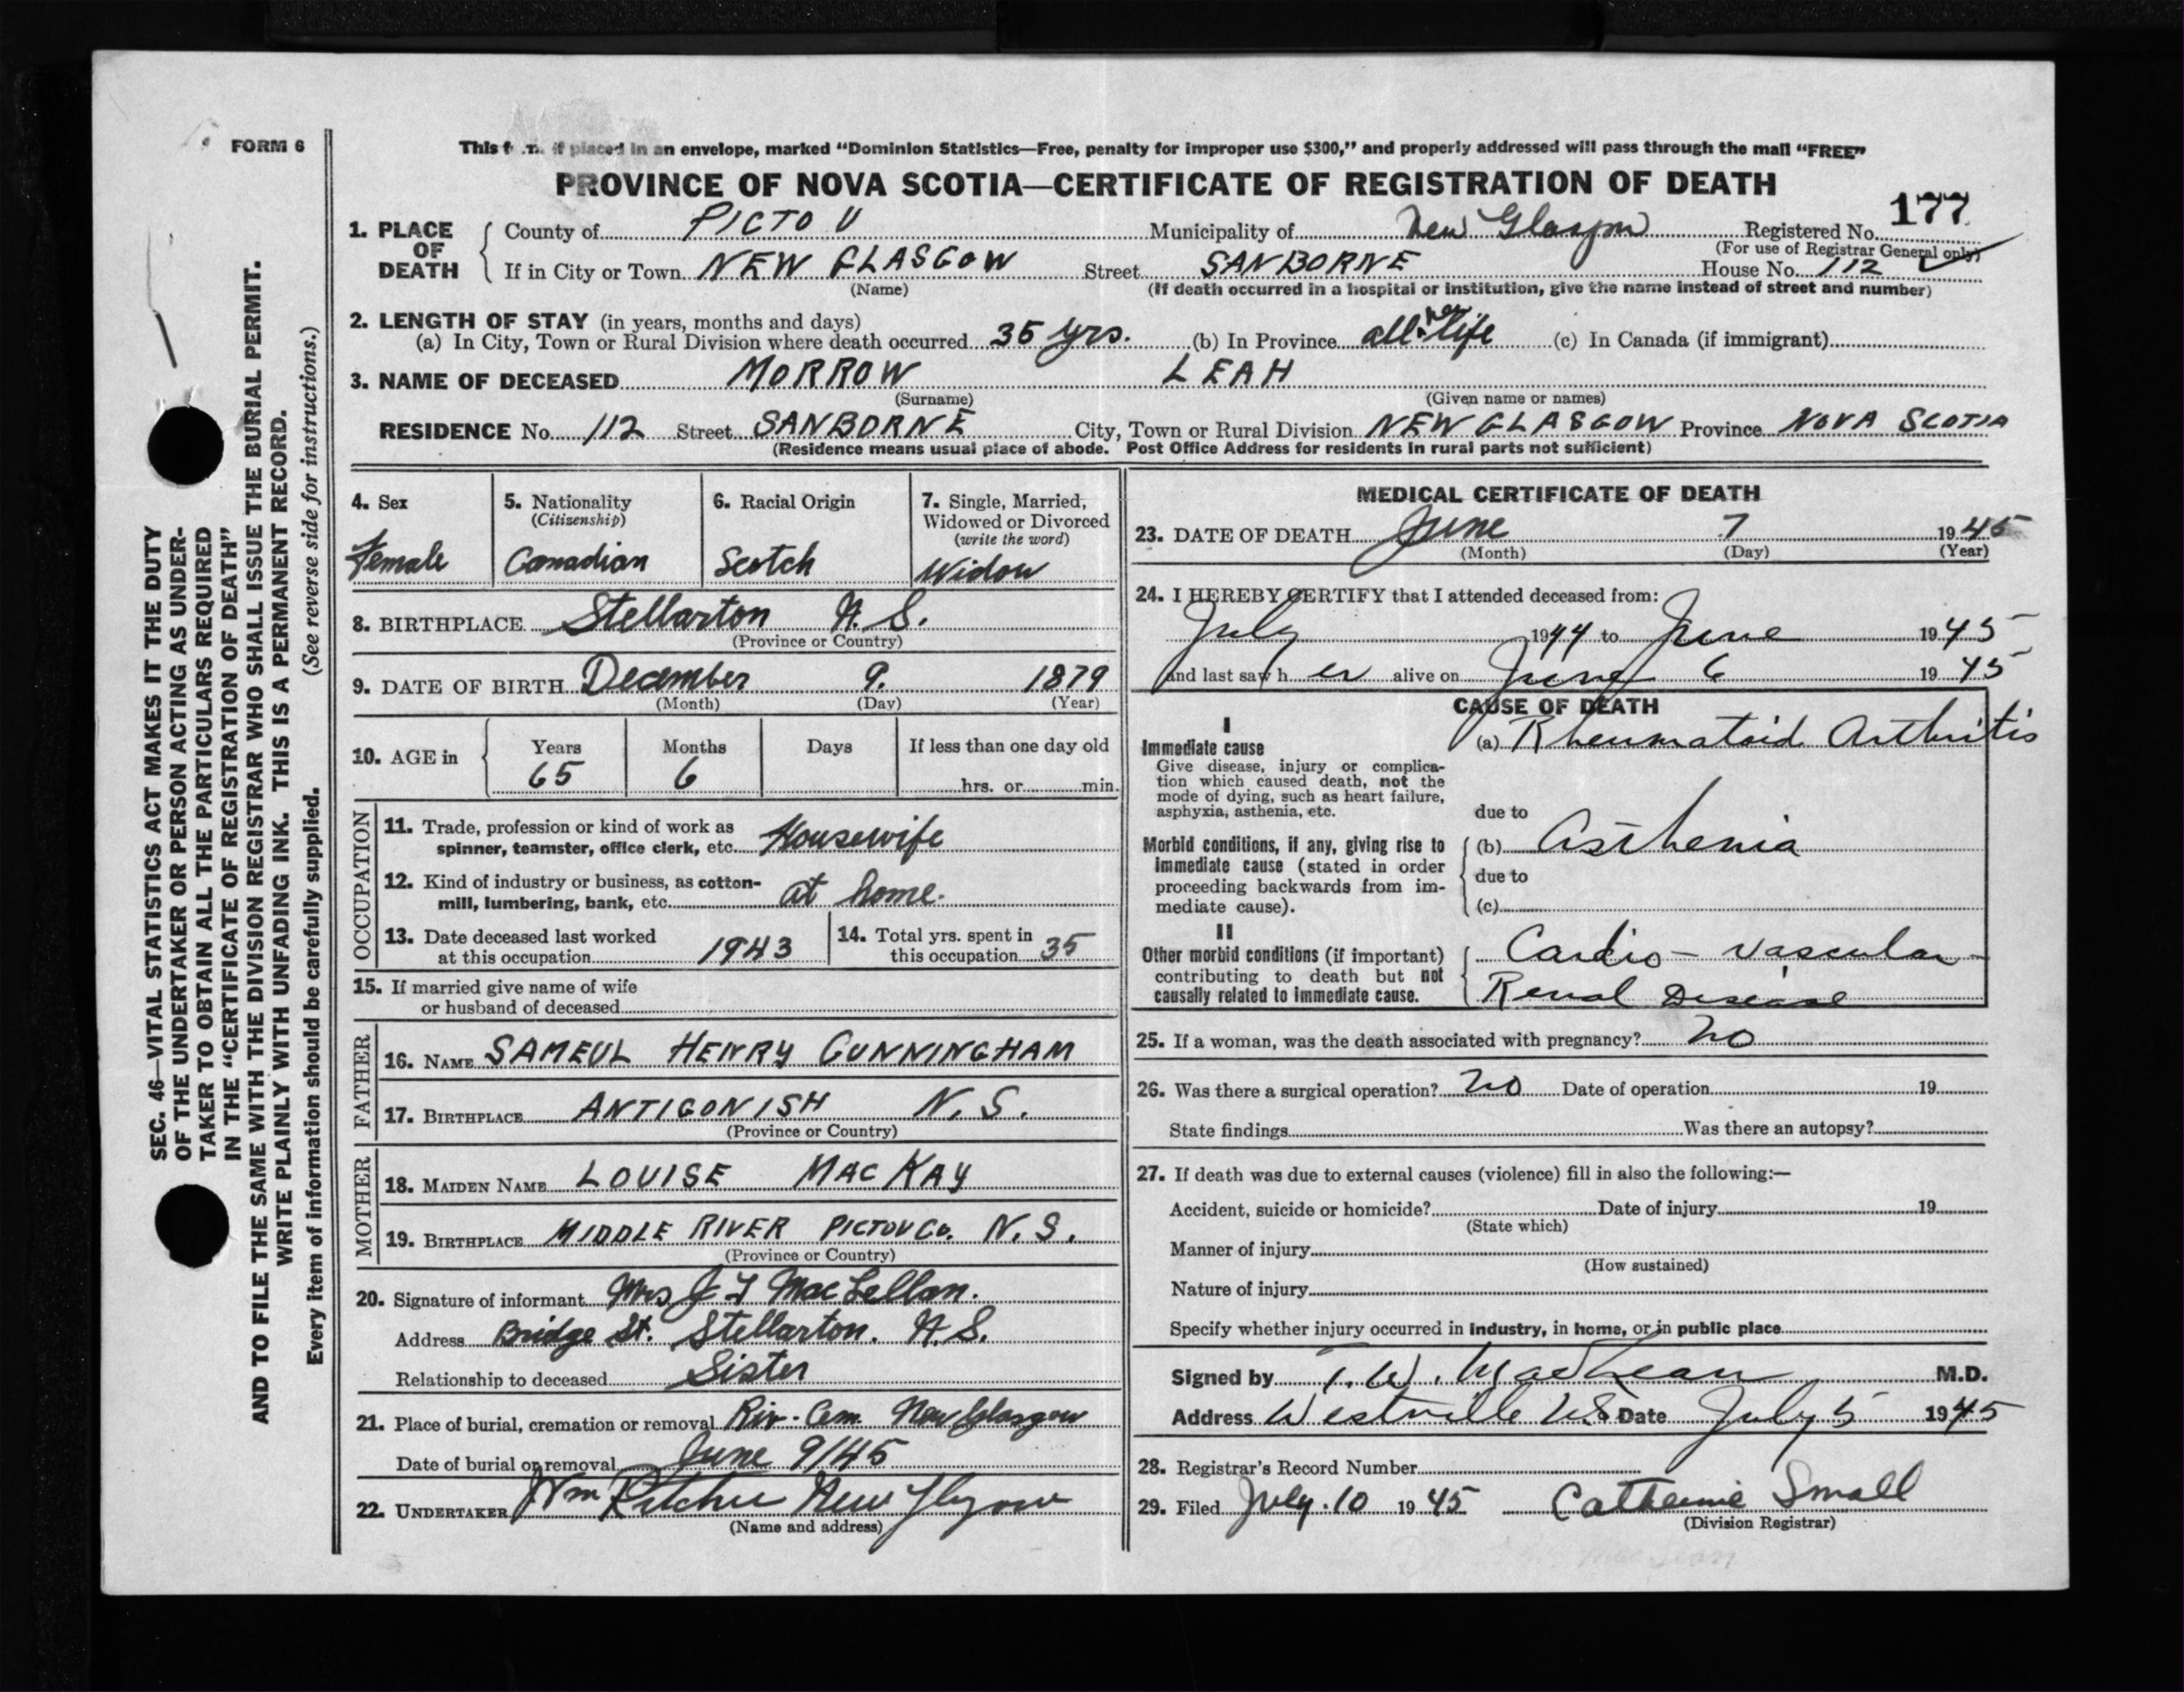 FORM 6
This f .r. if placed in an envelope, marked "Dominion Statistics—Free, penalty for improper use $300," and properly addressed will pass through the mail "FREE"
PROVINCE OF NOVA SCOTIA—CERTIFICATE OF REGISTRATION OF DEATH
177
1. PLACE OF DEATH
County of PICTOU Municipality of New Glasgow Registered No.
(For use of Registrar General only)
If in City or Town NEW GLASGOW Street SANBORNE House No. 112
(Name) (If death occurred in a hospital or institution, give the name instead of street and number)
2. LENGTH OF STAY (in years, months and days)
(a) In City, Town or Rural Division where death occurred 35 yrs. (b) In Province all her life (c) In Canada (if immigrant)
3. NAME OF DECEASED MORROW LEAH
(Surname) (Given name or names)
RESIDENCE No. 112 Street SANBORNE City, Town or Rural Division NEW GLASGOW Province NOVA SCOTIA
(Residence means usual place of abode. Post Office Address for residents in rural parts not sufficient)
4. Sex
Female
5. Nationality
(Citizenship)
Canadian
6. Racial Origin
Scotch
7. Single, Married,
Widowed or Divorced
(write the word)
Widow
8. BIRTHPLACE Stellarton N.S.
(Province or Country)
9. DATE OF BIRTH December 9. 1879
(Month) (Day) (Year)
10. AGE in
Years Months Days If less than one day old
65 6 hrs. or min.
OCCUPATION
11. Trade, profession or kind of work as
spinner, teamster, office clerk, etc. Housewife
12. Kind of industry or business, as cotton-
mill, lumbering, bank, etc. at home.
13. Date deceased last worked
at this occupation 1943
14. Total yrs. spent in
this occupation 35
15. If married give name of wife
or husband of deceased
FATHER
16. NAME SAMEUL HENRY CUNNINGHAM
17. BIRTHPLACE ANTIGONISH N.S.
(Province or Country)
MOTHER
18. MAIDEN NAME LOUISE MACKAY
19. BIRTHPLACE MIDDLE RIVER PICTOU CO. N.S.
(Province or Country)
20. Signature of informant Mrs J F MacLellan.
Address Bridge St. Stellarton. N.S.
Relationship to deceased Sister
21. Place of burial, cremation or removal Riv. Cem. New Glasgow
Date of burial or removal June 9/45
22. UNDERTAKER Wm Ritchie New Glasgow
(Name and address)
MEDICAL CERTIFICATE OF DEATH
23. DATE OF DEATH June 7 1945
(Month) (Day) (Year)
24. I HEREBY CERTIFY that I attended deceased from:
July 1944 to June 1945
and last saw her alive on June 6 1945
CAUSE OF DEATH
I
Immediate cause
Give disease, injury or complica-
tion which caused death, not the
mode of dying, such as heart failure,
asphyxia, asthenia, etc.
(a) Rheumatoid Arthritis
due to
Morbid conditions, if any, giving rise to
immediate cause (stated in order
proceeding backwards from im-
mediate cause).
(b) Asthenia
due to
(c)
II
Other morbid conditions (if important)
contributing to death but not
causally related to immediate cause.
Cardio-vascular-
Renal Disease
25. If a woman, was the death associated with pregnancy? no
26. Was there a surgical operation? no Date of operation 19
State findings Was there an autopsy?
27. If death was due to external causes (violence) fill in also the following:—
Accident, suicide or homicide? Date of injury 19
(State which)
Manner of injury
(How sustained)
Nature of injury
Specify whether injury occurred in industry, in home, or in public place
Signed by T. W. MacLean M.D.
Address Westville N.S. Date July 5 1945
28. Registrar's Record Number
29. Filed July 10 1945 Catherine Small
(Division Registrar)
SEC. 46—VITAL STATISTICS ACT MAKES IT THE DUTY
OF THE UNDERTAKER OR PERSON ACTING AS UNDER-
TAKER TO OBTAIN ALL THE PARTICULARS REQUIRED
IN THE "CERTIFICATE OF REGISTRATION OF DEATH"
AND TO FILE THE SAME WITH THE DIVISION REGISTRAR WHO SHALL ISSUE THE BURIAL PERMIT.
WRITE PLAINLY WITH UNFADING INK. THIS IS A PERMANENT RECORD.
Every item of information should be carefully supplied. (See reverse side for instructions.)